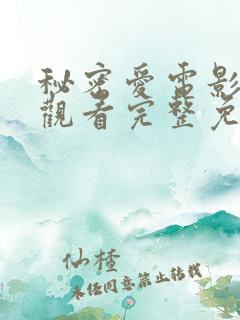 秘密愛電影
觀看完整免
仙楂
未经同意禁止转载